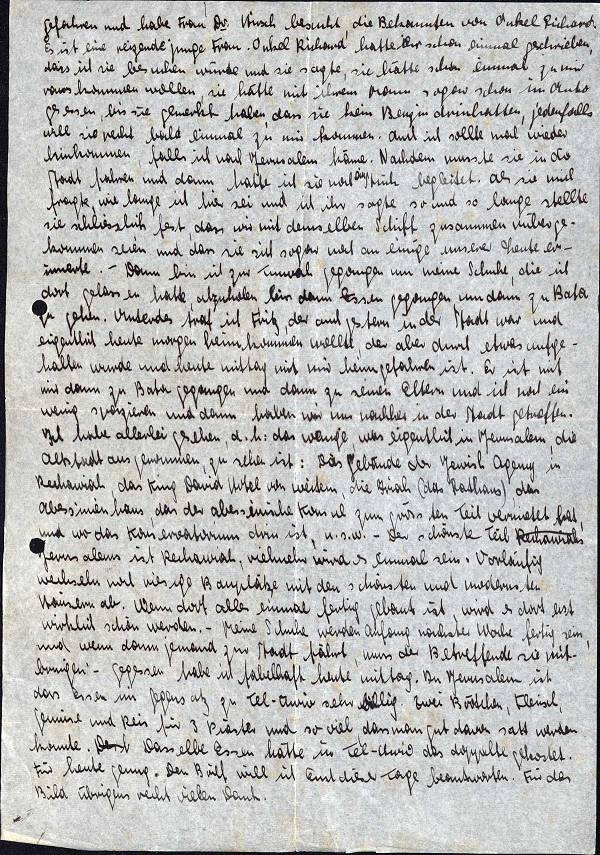 gefahren und habe Frau Dr. Hirsch besucht, die Bekannten von Onkel Richard.
Es ist eine reizende junge Frau. Onkel Richard hatte ihr schon einmal geschrieben,
dass ich sie besuchen würde und sie sagte, sie hätte schon einmal zu mir
rauskommen wollen, sie hätte mit ihrem Mann sogar schon im Auto
gesessen, bis sie gemerkt haben dass sie kein Benzin drinhatten, jedenfalls
will sie recht bald einmal zu mir kommen. Auch ich sollte mal wieder
hinkommen, falls ich nach Jerusalem käme. Nachdem musste sie in die
Stadt fahren und dann hatte ich sie noch ein Stück begleitet. Als sie mich
fragte, wie lange ich hier sei und ich ihr sagte so und so lange stellte
sie schliesslich fest, dass wir mit demselben Schiff zusammen rüberge-
kommen seien und dass sie sich sogar noch an einige unserer Leute er-
innerte. - Dann bin ich zur gegangen um meine Schuhe, die ich
dort gelassen hatte abzuholen dann Essen gegangen um dann zu Bata
zu gehen. Unterdes traf ich Fritz der auch gestern in der Stadt war und
eigentlich heute morgen heimkommen wollte, der aber durch etwas aufge-
halten wurde und heute mittag mit mir heimgefahren ist. Er ist mit
mir dann zu Bata gegangen und dann zu seinen Eltern und ich noch ein
wenig spazieren und dann haben wir uns nachher in der Stadt getroffen.
Ich habe allerlei gesehen d.h: das wenige, was eigentlich in Jerusalem, die
Altstadt ausgenommen, zu sehen ist: Das Gebäude der Jewish Agency in
Rechawiah, das King David Hotel von weitem, die Iriah (das Rathaus) das
Abessinienhaus das der abessinische Konsul zum grössten Teil vermietet hat,
und wo das Konservatorium drin ist, u.s.w. - Der schönste Teil
Jerusalems ist Rechawiah, vielmehr wird es einmal sein. Vorläufig
wechseln noch riesige Bauplätze mit den schönsten und modernsten
Häusern ab. Wenn dort alles einmal fertig gebaut ist, wird es dort erst
wirklich schön werden. - Meine Schuhe werden Anfang nächster Woche fertig sein,
und wenn dann jemand zur Stadt fährt, muss der Betreffende sie mit-
bringen. - Gegessen habe ich fabelhaft heute mittag. In Jerusalem ist
das Essen im Gegensatz zu Tel-Awiw sehr billig. Zwei Brötchen, Fleisch,
Gemüse und Reis für 3 Piaster und so viel dass man gut davon satt werden
konnte. Dasselbe Essen hätte in Tel-Awiw das doppelte gekostet.
Für heute genug. Den Brief will ich auch dieser Tage beantworten. Für das
Bild übrigens recht vielen Dank.